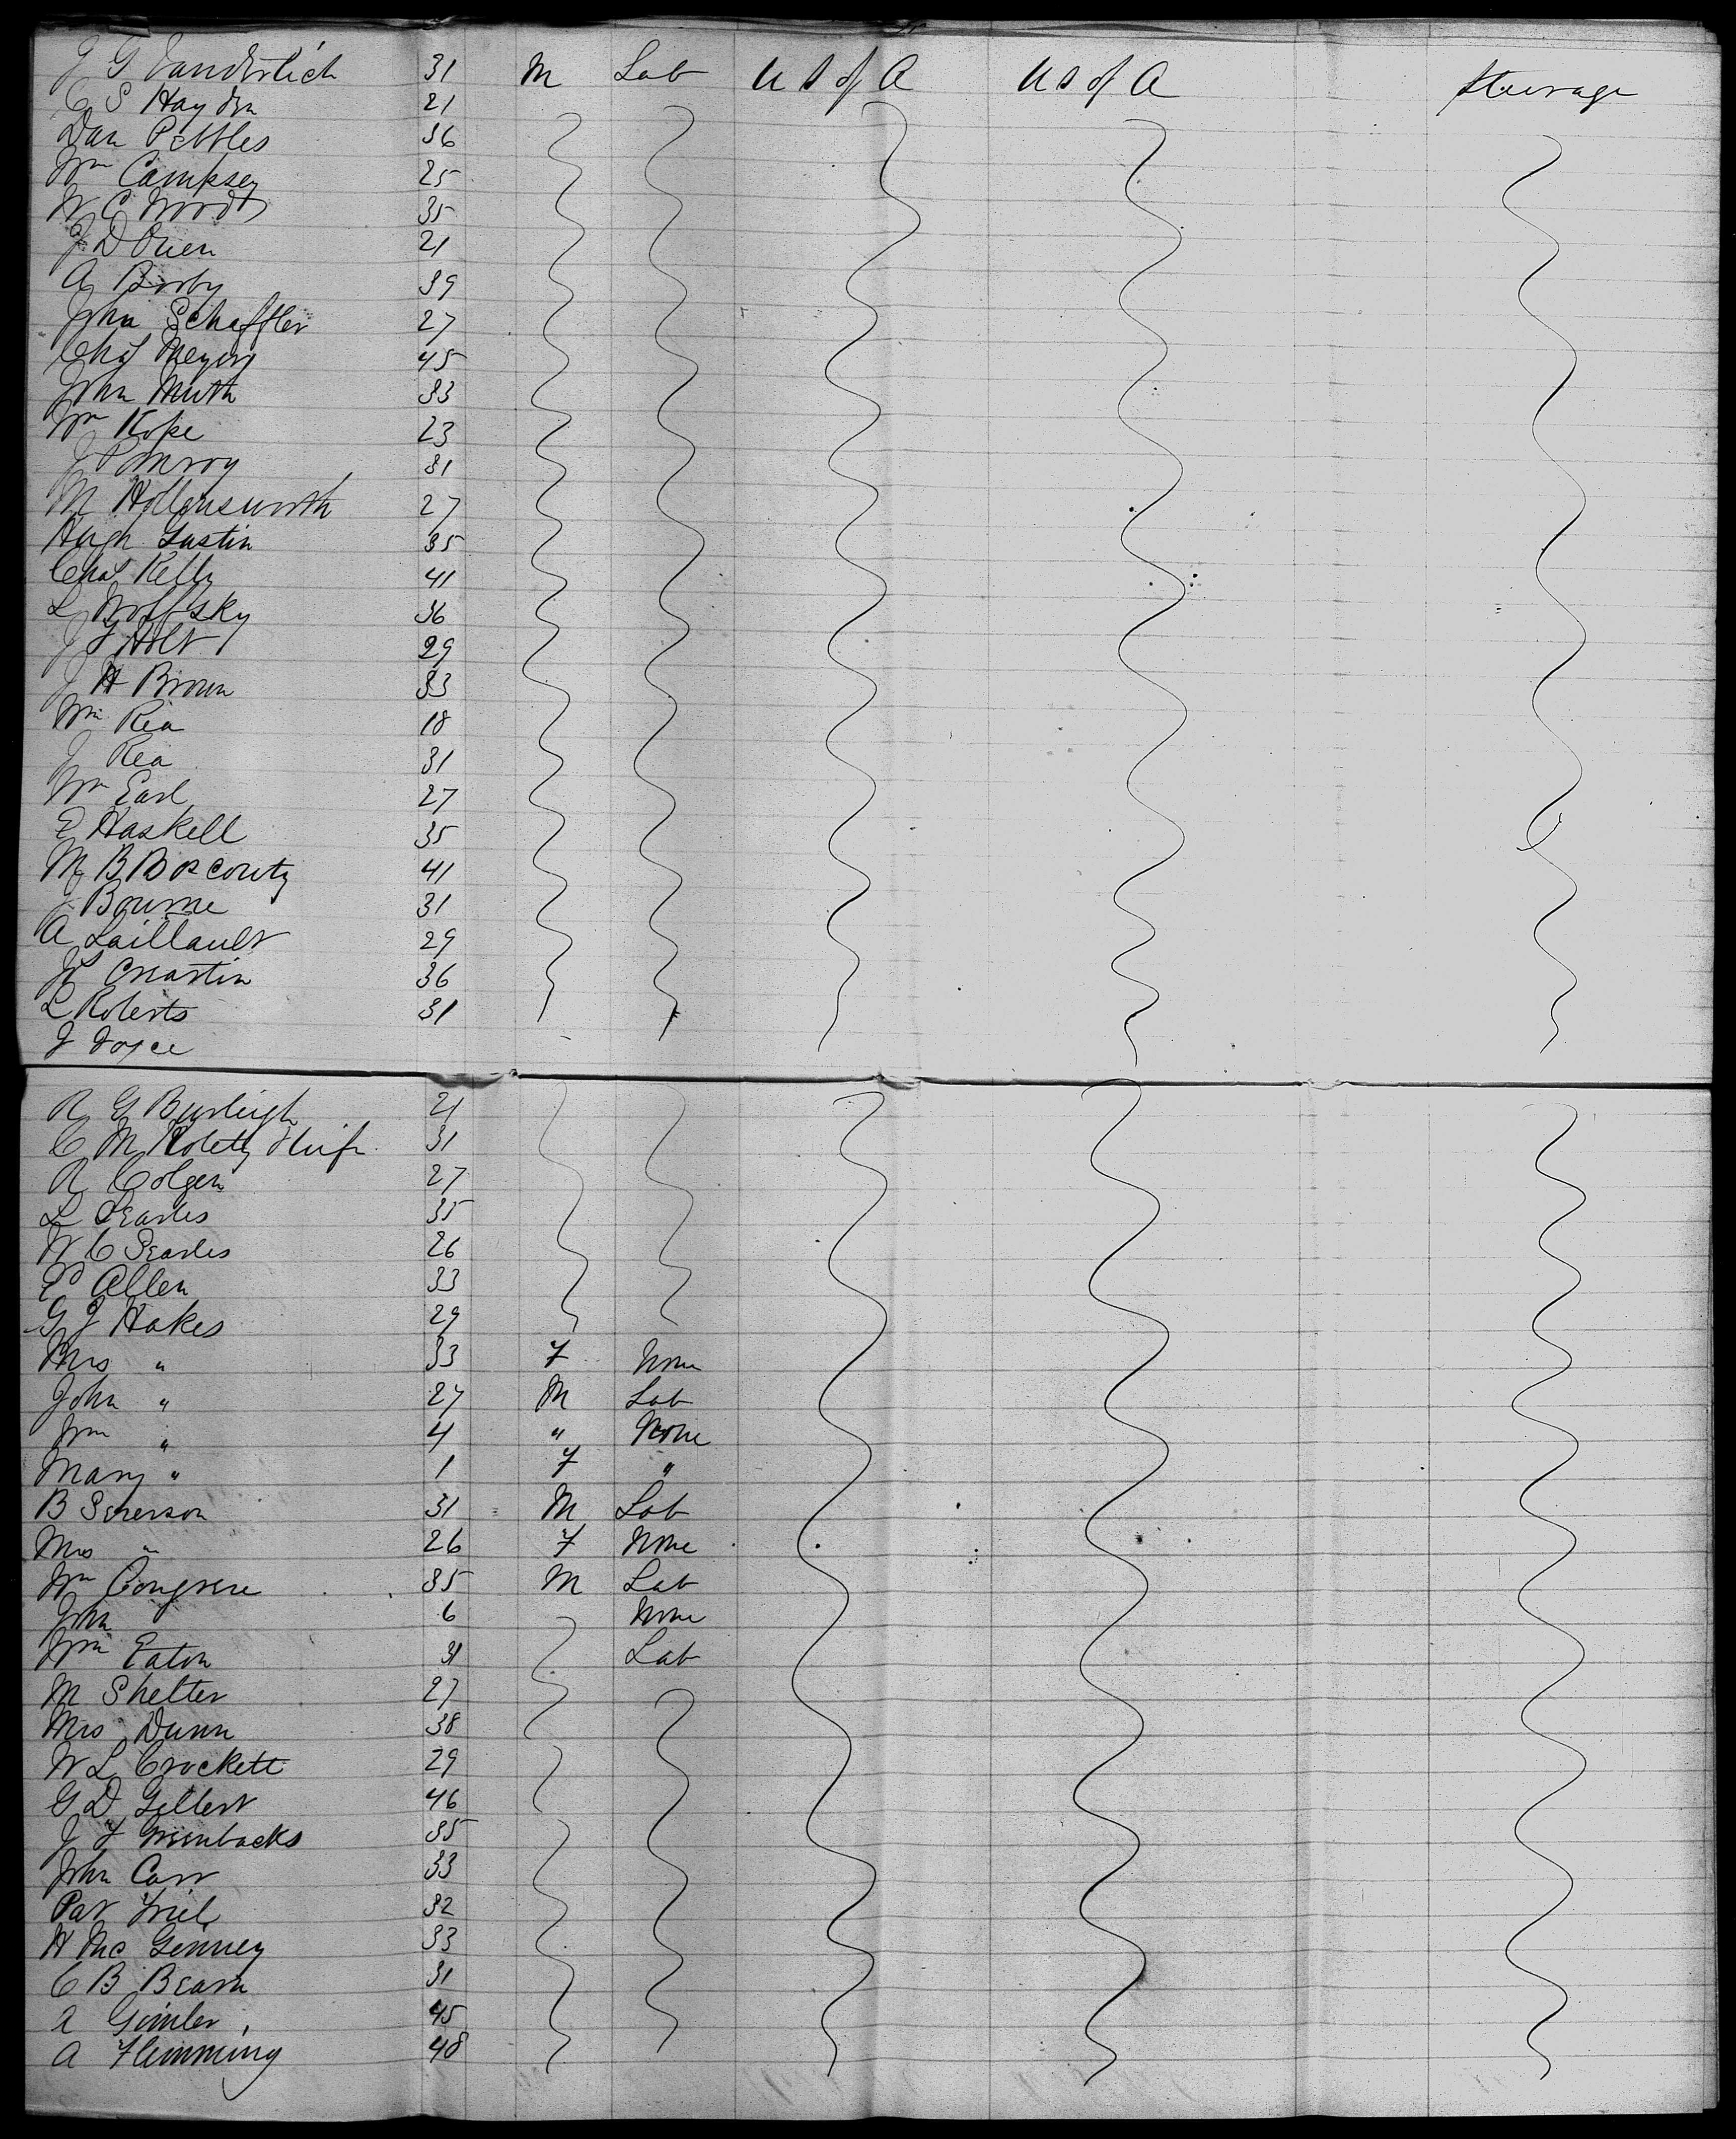 J G Vanderlich 31 M Lab U S of A U S of A Steerage
C S Hayden 21
Dan Pebbles 36
Wm Campsey 25
W C Woods 35
J D Owen 21
A Bixby 39
John Schaffler 27
Chas Meyers 45
John Muth 33
Wm Kope 23
J Pomroy 31
M Hollensworth 27
Hugh Gustin 35
Chas Kelly 41
L Wolfsky 36
J F Holt 29
J H Brown 33
Wm Rea 18
J Rea 31
Wm Earl 27
E Haskell 35
M B Boscowtz 41
J Bourne 31
A Laillault 29
Martin 36
L Roberts 31
J Joyce
R G Burleigh 21
C M Roletty & Wife 31
R Colgen 27
L Searles 35
W C Searles 26
P Allen 33
G J Hakes 29
Mrs " 33 F None
John " 27 M Lab
Wm " 4 " None
Mary " 1 F "
B Severson 31 M Lab
Mrs " 26 F None
Wm Congreve 35 M Lab
John 6 None
Wm Eaton 31 Lab
M Shelter 27
Mrs Dunn 38
W L Crockett 29
G D Gilbert 46
J F Greenbacks 35
John Carr 33
Pat Friel 32
H Mc Genney 33
C B Bearn 31
A Gimler 45
A Flemming 48